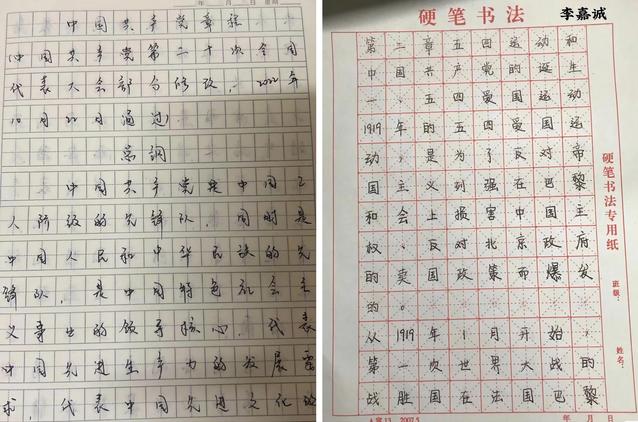 年 月 日 星期
中国共产党章程
(中国共产党第二十次全国
代表大会部分修改,2022年
10月22日通过)
总纲
中国共产党是中国工
人阶级的先锋队,同时是
中国人民和中华民族的先
锋队,是中国特色社会主
义事业的领导核心,代表
中国先进生产力的发展要
求,代表中国先进文化的
硬笔书法
李嘉诚
第二章五四运动和
中国共产党的诞生
一、五四爱国运动
1919年的五四爱国运
动,是为了反对帝
国主义列强在巴黎
和会上损害中国主
权、反对北京政府
的卖国政策而爆发
的。
从1919年1月开始,
第一次世界大战的
战胜国在法国巴黎
硬笔书法专用纸
班级:
姓名:
2007.5
年 月 日